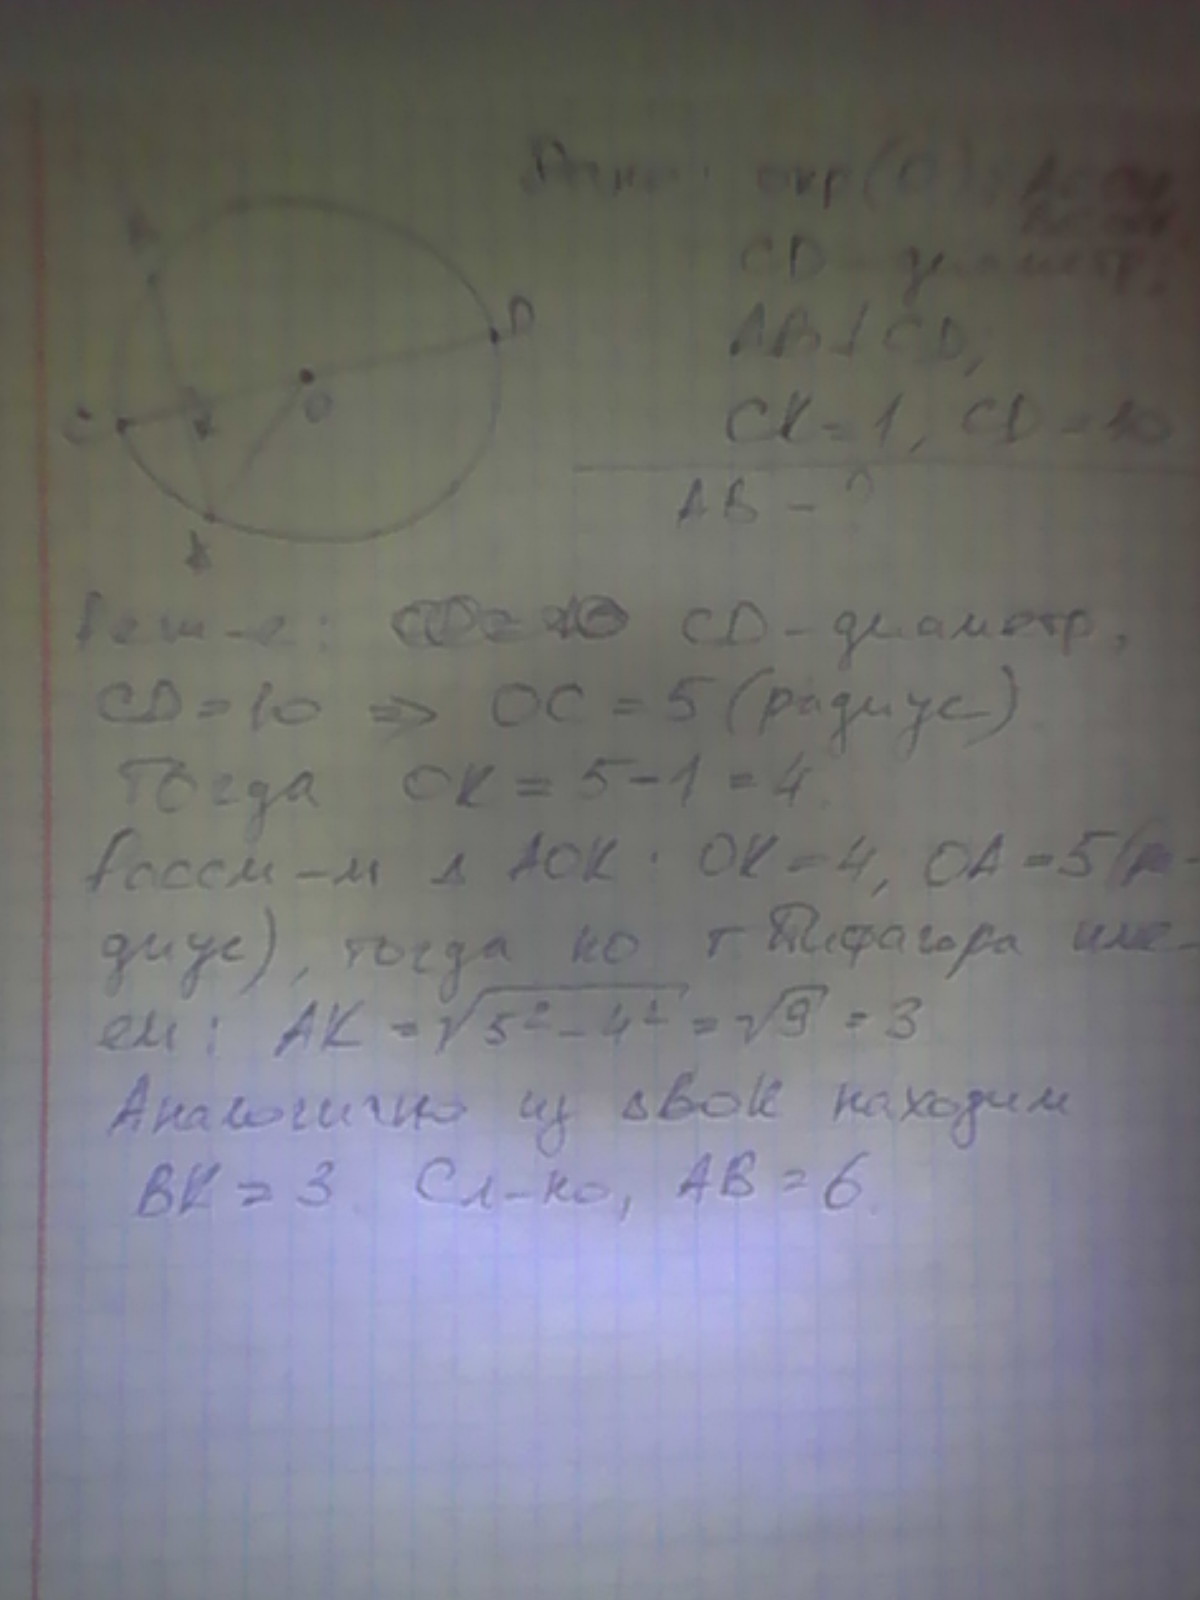 Дано: окр(О),
CD – диаметр,
AB ⊥ CD,
CK = 1, CD = 10
AB – ?
D
C
K
O
Реш-е: CD – диаметр,
CD = 10 ⇒ OC = 5 (радиус)
Тогда OK = 5 - 1 = 4.
Рассм-м Δ AOK. OK = 4, OA = 5 (ра-
диус), тогда по т. Пифагора име-
ем: AK = √5² - 4² = √9 = 3
Аналогично из ΔBOK находим
BK = 3. Сл-но, AB = 6.